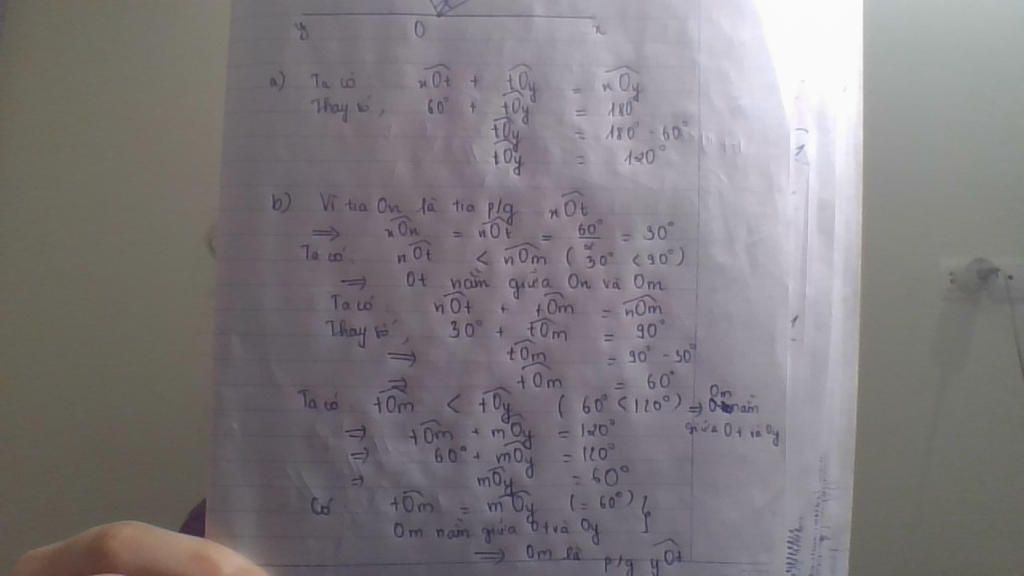 y O x
a) Ta có xOt + tOy = xOy
Thay số, 60° + tOy = 180°
tOy = 180° - 60°
tOy = 120°
b) Vì tia On là tia p/g xOt
=> xOn = nOt = 60°/2 = 30°
Ta có: nOt < nOm (30° < 90°)
=> Ot nằm giữa On và Om
Ta có: nOt + tOm = nOm
Thay số, 30° + tOm = 90°
=> tOm = 90° - 30°
=> tOm = 60°
Ta có tOm < tOy (60° < 120°) => Om nằm
giữa Ot và Oy
=> tOm + mOy = 120°
=> 60° + mOy = 120°
=> mOy = 60°
Có tOm = mOy (= 60°) }
Om nằm giữa Ot và Oy
=> Om là p/g yOt